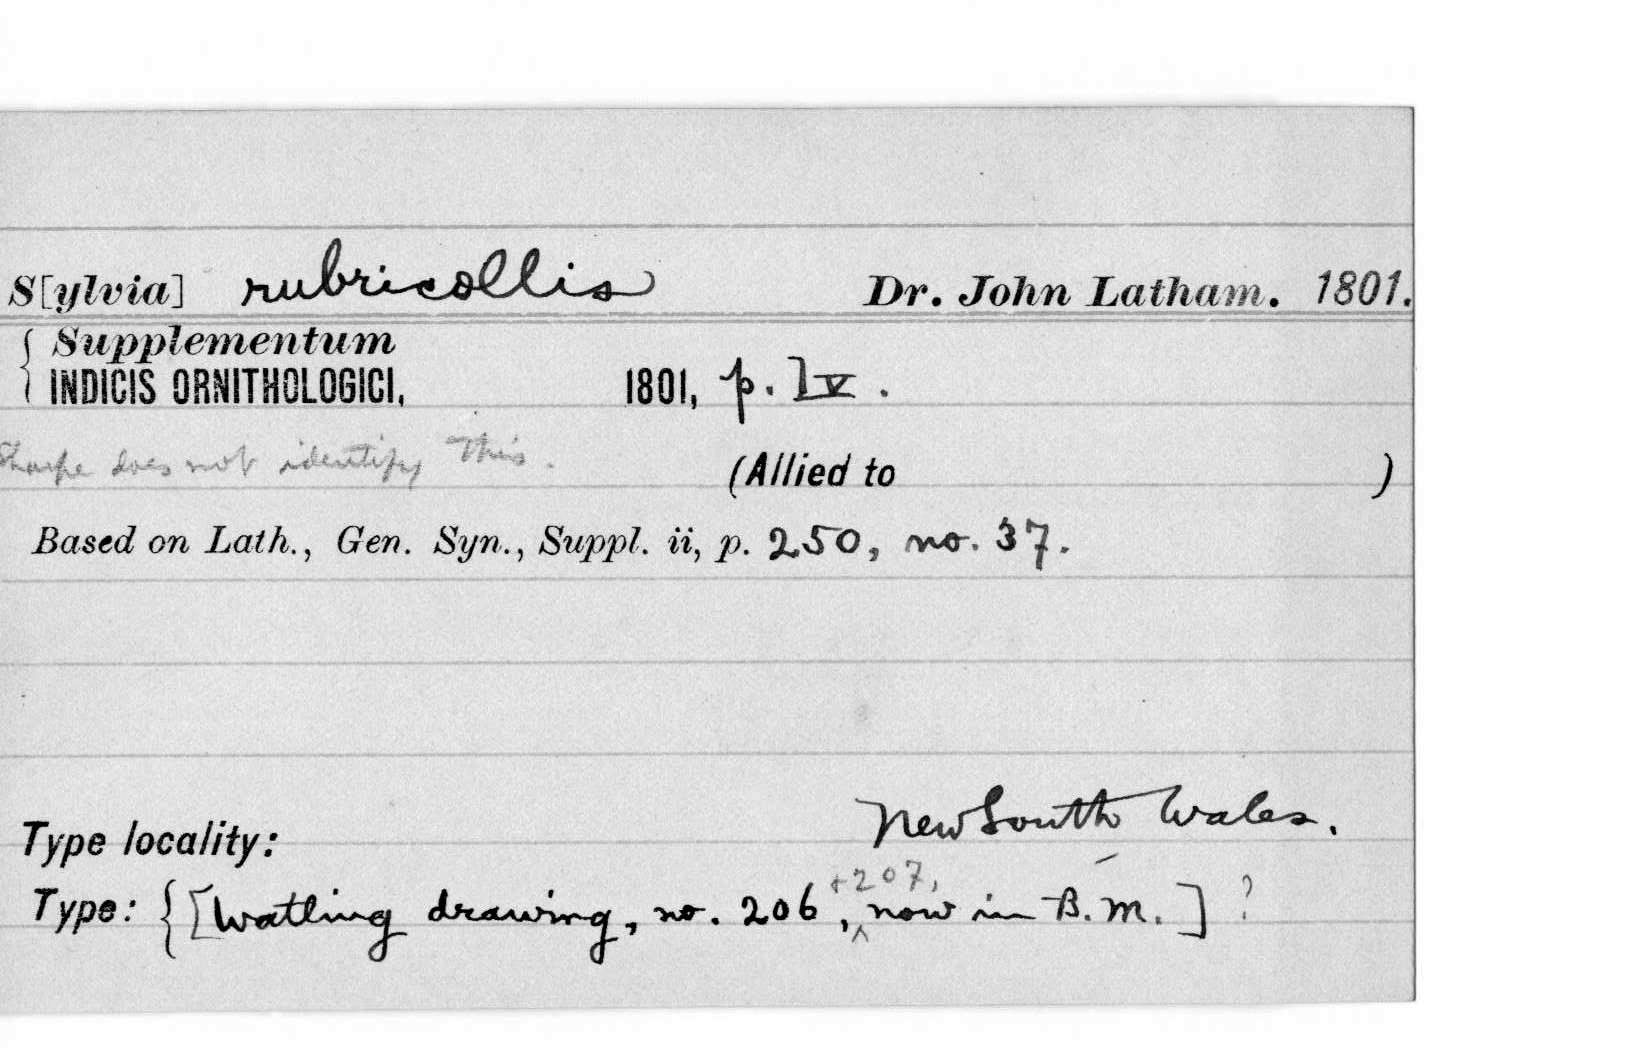 S[ylvia] rubricollis Dr. John Latham. 1801.
{ Supplementum
INDICIS ORNITHOLOGICI, 1801, p. lv.
Sharpe does not identify this. (Allied to )
Based on Lath., Gen. Syn., Suppl. ii, p. 250, no. 37.
Type locality: New South Wales.
+207,
Type: {[Watling drawing, no. 206, ^ now in B.M.] ?